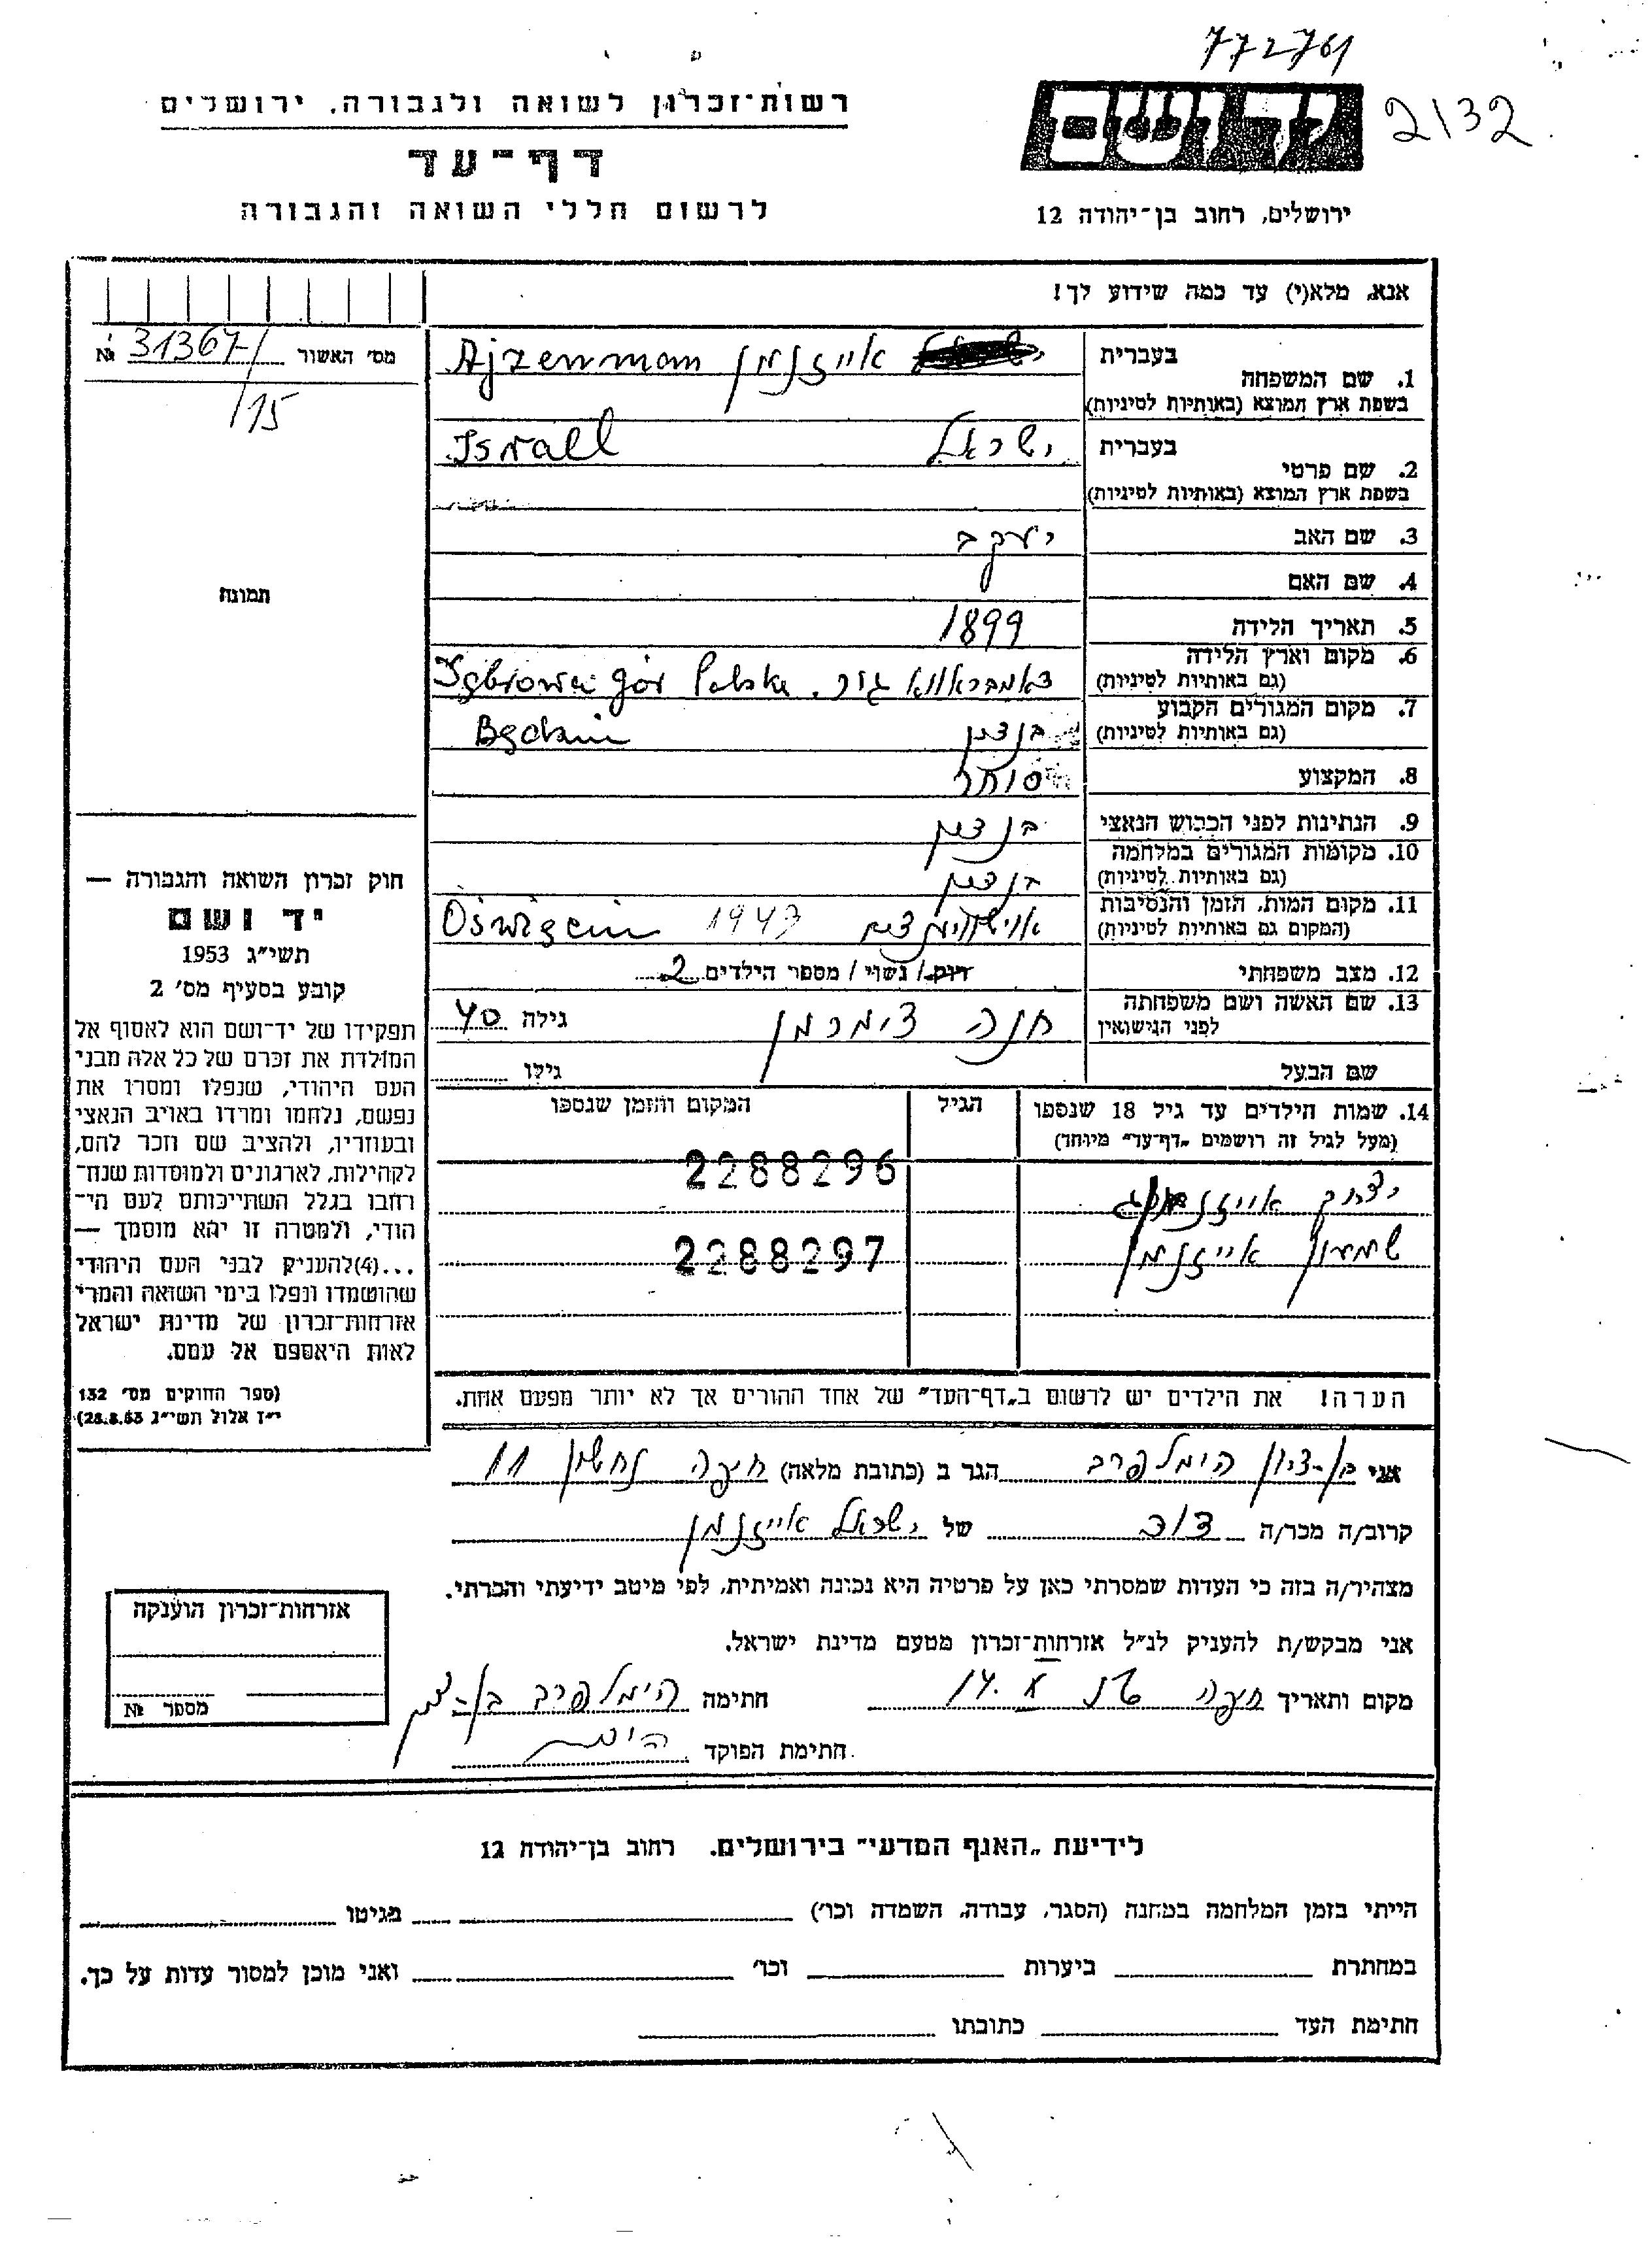 77276
2132
רשות-זכרון לשואה ולגבורה, ירושלים
יד ושם
דף-עד
לרשום חללי השואה והגבורה
ירושלים, רחוב בן-יהודה 12
אנא, מלא(י) עד כמה שידוע לך!
מס׳ האשור 31367 №
/15
תמונה
1. שם המשפחה בעברית אייזנמן Ajzenman
בשפת ארץ המוצא (באותיות לטיניות)
2. שם פרטי בעברית ישראל Israel
בשפת ארץ המוצא (באותיות לטיניות)
3. שם האב יעקב
4. שם האם
5. תאריך הלידה 1899
6. מקום וארץ הלידה דאמבראווא גור. gór Polska
(גם באותיות לטיניות)
7. מקום המגורים הקבוע בנדין Będzin
(גם באותיות לטיניות)
8. המקצוע סוחר
9. הנתינות לפני הכבוש הנאצי בנדין
10. מקומות המגורים במלחמה
(גם באותיות לטיניות) בנדין
11. מקום המות, הזמן והנסיבות 1943 Oświęcim
(המקום גם באותיות לטיניות)
12. מצב משפחתי רווק / נשוי / מספר הילדים 2
13. שם האשה ושם משפחתה חנה צימרמן גילה 40
לפני הנישואין
שם הבעל גילו
14. שמות הילדים עד גיל 18 שנספו הגיל המקום והזמן שנספו
(מעל לגיל זה רושמים „דף-עד״ מיוחד)
יצחק אייזנמן 2288296
שמעון אייזנמן 2288297
הערה! את הילדים יש לרשום ב„דף-העד״ של אחד ההורים אך לא יותר מפעם אחת.
חוק זכרון השואה והגבורה —
יד ושם
תשי״ג 1953
קובע בסעיף מס׳ 2
תפקידו של יד-ושם הוא לאסוף אל
המולדת את זכרם של כל אלה מבני
העם היהודי, שנפלו ומסרו את
נפשם, נלחמו ומרדו באויב הנאצי
ובעוזריו, ולהציב שם וזכר להם,
לקהילות, לארגונים ולמוסדות שנח-
רחבו בגלל השתייכותם לעם הי-
הודי, ולמטרה זו יהא מוסמך —
...(4)להעניק לבני העם היהודי
שהושמדו ונפלו בימי השואה והמרי
אזרחות-זכרון של מדינת ישראל
לאות היאספם אל עמם.
(ספר החוקים מס׳ 132
י״ז אלול תשי״ג 28.8.53)
אני בן-ציון הימלפרב הגר ב (כתובת מלאה) חיפה נחשון 11
קרוב/ה מכר/ה של ישראל אייזנמן
מצהיר/ה בזה כי העדות שמסרתי כאן על פרטיה היא נכונה ואמיתית, לפי מיטב ידיעתי והכרתי.
אני מבקש/ת להעניק לנ״ל אזרחות-זכרון מטעם מדינת ישראל.
מקום ותאריך חיפה 14. X חתימה הימלפרב בן-ציון
חתימת הפוקד
אזרחות-זכרון הוענקה
מספר №
לידיעת „האגף המדעי״ בירושלים. רחוב בן-יהודה 12
הייתי בזמן המלחמה במחנה (הסגר, עבודה, השמדה וכו׳) בגיטו
במחתרת ביערות וכו׳ ואני מוכן למסור עדות על כך.
חתימת העד כתובתו